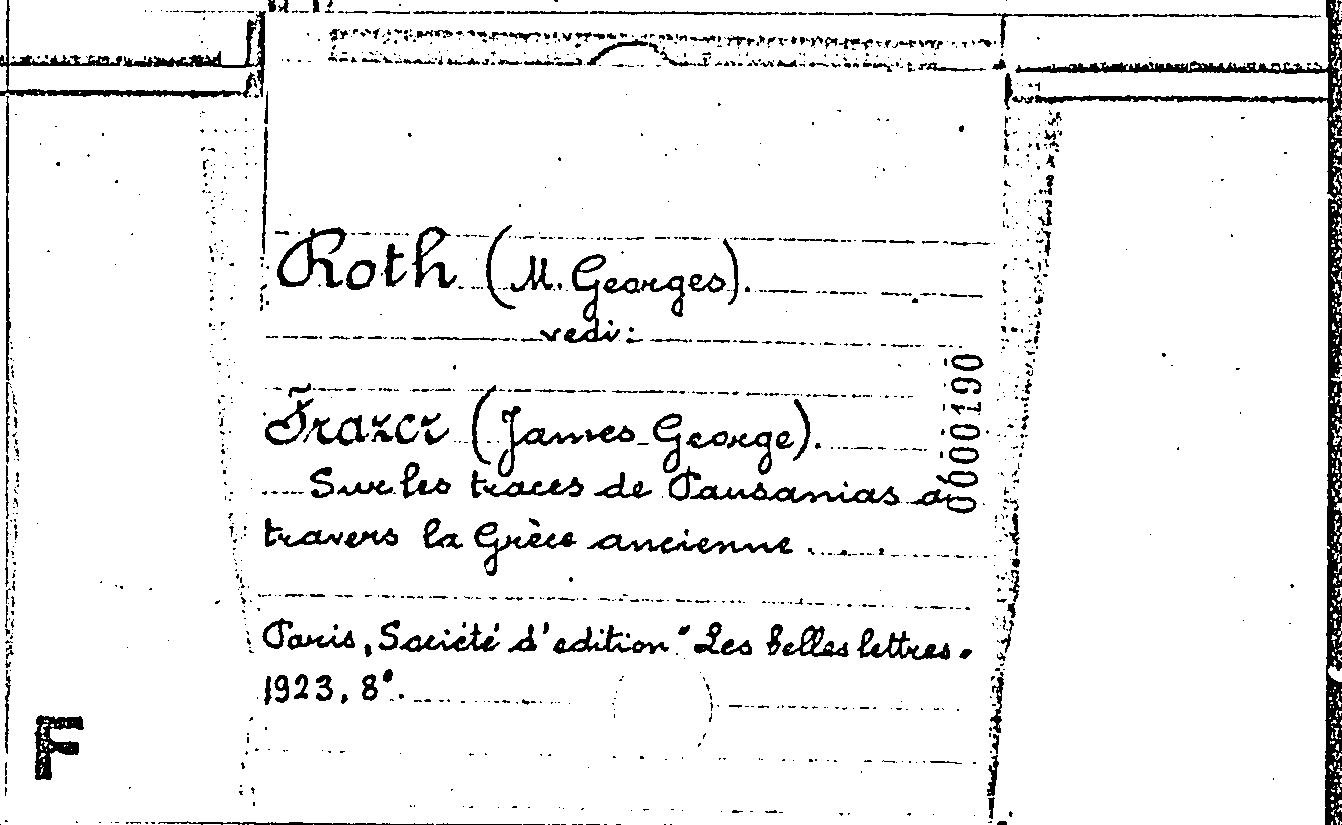 Roth (M. Georges).
vedi:
Frazer (James George).
Sur les traces de Pausanias à
travers la Grèce ancienne . . .
Paris, Société d'edition "Les belles lettres.
1923, 8°.
0000190
F